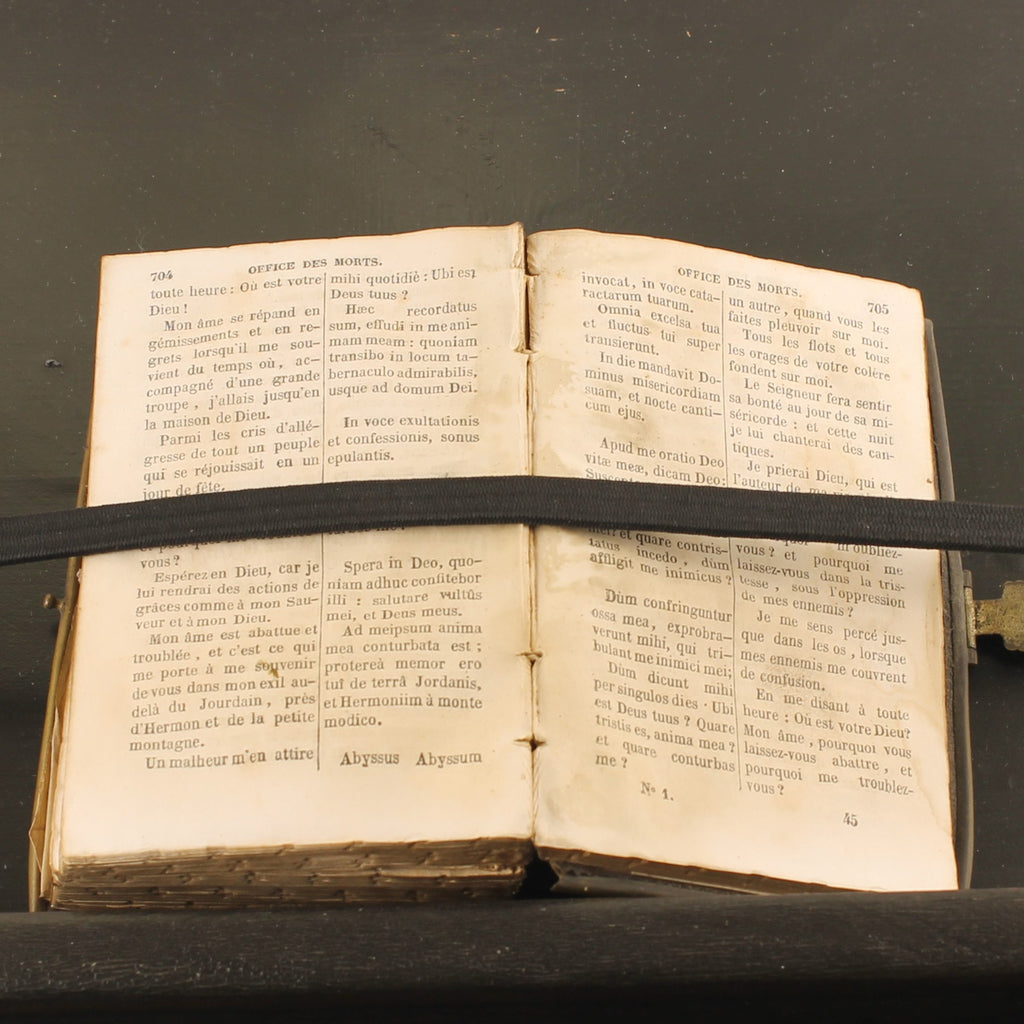 704
OFFICE DES MORTS.
toute heure : Où est votre
Dieu !
Mon âme se répand en
gémissements et en re-
grets lorsqu'il me sou-
vient du temps où, ac-
compagné d'une grande
troupe, j'allais jusqu'en
la maison de Dieu.
Parmi les cris d'allé-
gresse de tout un peuple
qui se réjouissait en un
jour de fête.
vous ?
Espérez en Dieu, car je
lui rendrai des actions de
grâces comme à mon Sau-
veur et à mon Dieu.
Mon âme est abattue et
troublée, et c'est ce qui
me porte à me souvenir
de vous dans mon exil au-
delà du Jourdain, près
d'Hermon et de la petite
montagne.
Un malheur m'en attire
mihi quotidiè : Ubi est
Deus tuus ?
Hæc recordatus
sum, effudi in me ani-
mam meam : quoniam
transibo in locum ta-
bernaculo admirabilis,
usque ad domum Dei.
In voce exultationis
et confessionis, sonus
epulantis.
Spera in Deo, quo-
niam adhuc confitebor
illi : salutare vultûs
mei, et Deus meus.
Ad meipsum anima
mea conturbata est ;
protereà memor ero
tuî de terrâ Jordanis,
et Hermoniim à monte
modico.
Abyssus Abyssum
OFFICE DES MORTS.
705
invocat, in voce cata-
ractarum tuarum.
Omnia excelsa tua
et fluctus tui super
transierunt.
In die mandavit Do-
minus misericordiam
suam, et nocte canti-
cum ejus.
Apud me oratio Deo
vitæ meæ, dicam Deo :
mei? et quare contris-
tatus incedo, dùm
affligit me inimicus ?
Dùm confringuntur
ossa mea, exprobra-
verunt mihi, qui tri-
bulant me inimici mei;
Dùm dicunt mihi
per singulos dies : Ubi
est Deus tuus ? Quare
tristis es, anima mea ?
et quare conturbas
me ?
un autre, quand vous les
faites pleuvoir sur moi.
Tous les flots et tous
les orages de votre colère
fondent sur moi.
Le Seigneur fera sentir
sa bonté au jour de sa mi-
séricorde : et cette nuit
je lui chanterai des can-
tiques.
Je prierai Dieu, qui est
l'auteur de ma
oubliez-
vous ? et pourquoi me
laissez-vous dans la tris-
tesse, sous l'oppression
de mes ennemis ?
Je me sens percé jus-
que dans les os, lorsque
mes ennemis me couvrent
de confusion.
En me disant à toute
heure : Où est votre Dieu?
Mon âme, pourquoi vous
laissez-vous abattre, et
pourquoi me troublez-
vous ?
Nº 1.
45